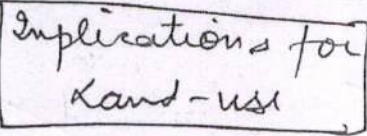 Implications for
Land-use